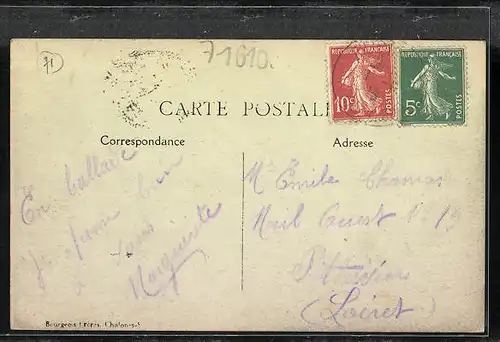 71
71610.
REPUBLIQUE FRANÇAISE
10c
POSTES
REPUBLIQUE FRANÇAISE
5c
POSTES
CARTE POSTALE
Correspondance
Adresse
En ballade
bien
à tous
Marguerite
Mr Emile
Mail Ouest N° 19
Pithiviers
(Loiret)
Bourgeois Frères, Chalon-s-S